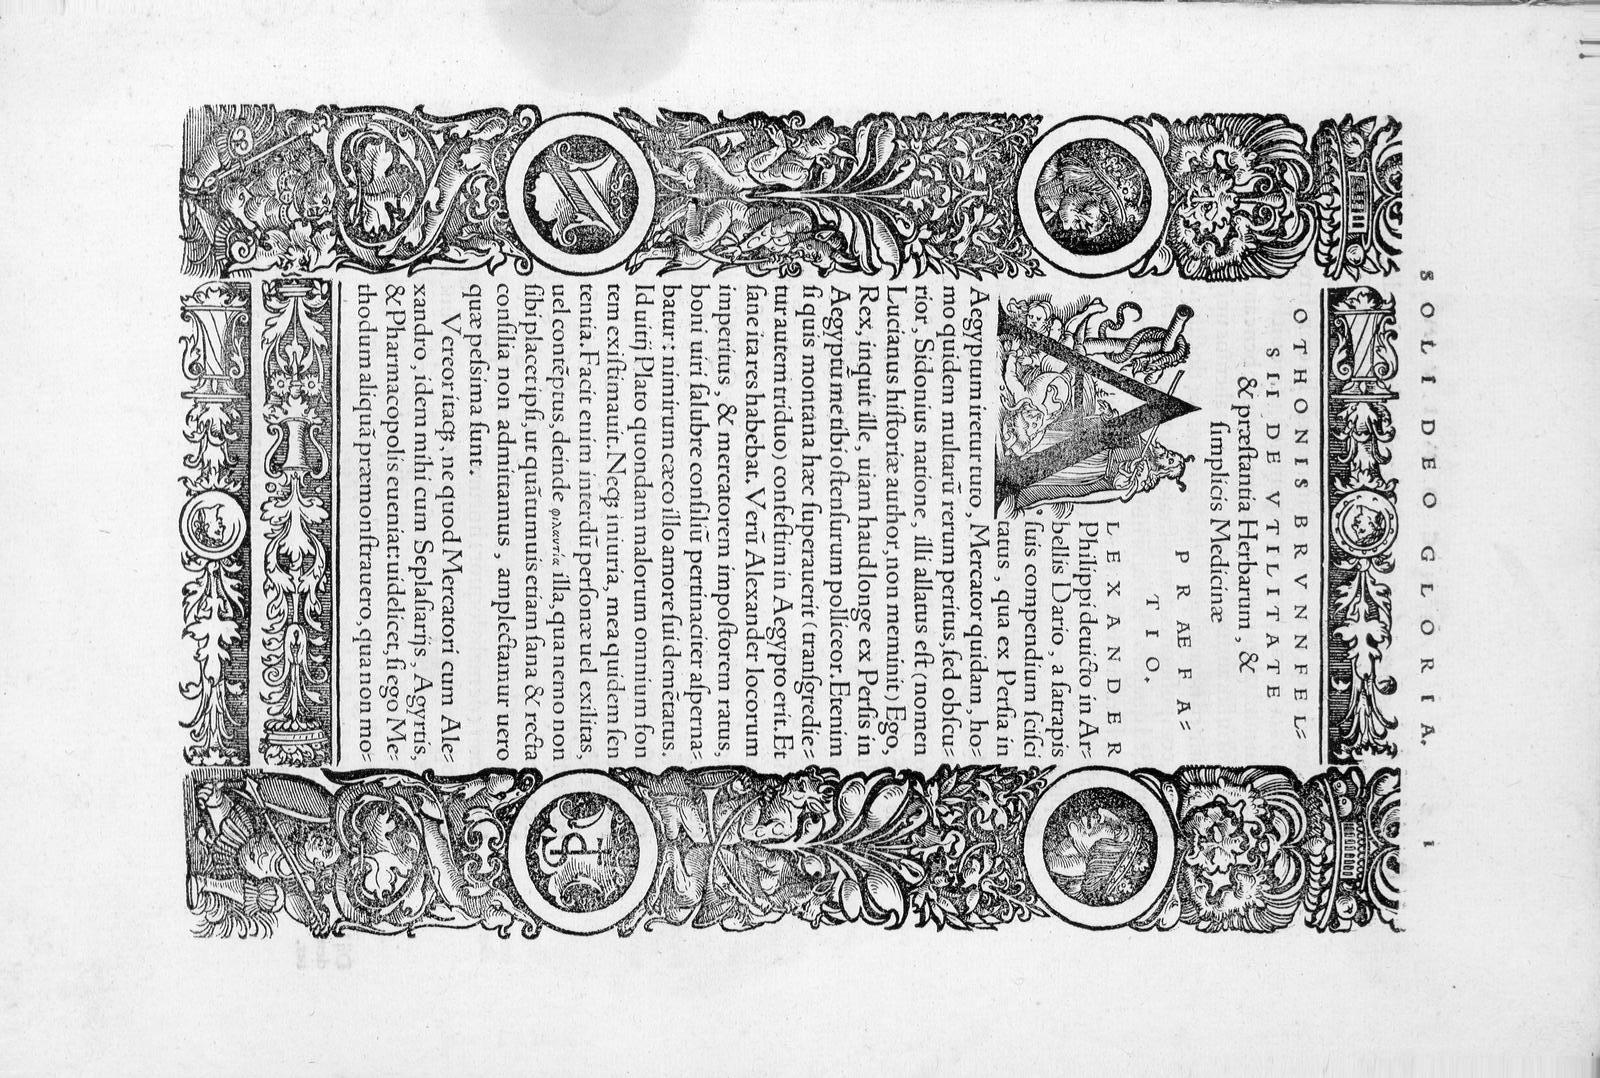 SOLI DEO GLORIA. 1
OTHONIS BRVNNFEL⸗
SII DE VTILITATE
& præſtantia Herbarum, &
ſimplicis Medicinæ
PRÆFA⸗
TIO.
ALEXANDER
Philippi deuicto in Ar⸗
bellis Dario, a ſatrapis
ſuis compendium ſciſci
tatus, qua ex Perſia in
Aegyptum iretur tuto, Mercator quidam, ho⸗
mo quidem multarū rerum peritus, ſed obſcu⸗
rior, Sidonius natione, illi allatus eſt (nomen
Lucianus hiſtoriæ author, non meminit) Ego,
Rex, inquit ille, uiam haud longe ex Perſis in
Aegyptū me tibi oſtenſurum polliceor. Etenim
ſi quis montana hæc ſuperauerit (tranſgredie⸗
tur autem triduo) confeſtim in Aegypto erit. Et
ſane ita res habebat. Verū Alexander locorum
imperitus, & mercatorem impoſtorem ratus,
boni uiri ſalubre conſiliū pertinaciter aſperna⸗
batur: nimirum cæco illo amore ſui demētatus.
Id uitij Plato quondam malorum omnium fon
tem exiſtimauit. Neqꝫ iniuria, mea quidem ſen
tentia. Facit enim interdū perſonæ uel exilitas,
uel contēptus, deinde φιλαυτία illa, qua nemo non
ſibi placet ipſi, ut quātumuis etiam ſana & recta
conſilia non admittamus, amplectamur uero
quæ peſsima ſunt.
Vereor itaqꝫ, ne quod Mercatori cum Ale⸗
xandro, idem mihi cum Seplaſiarijs, Agyrtis,
& Pharmacopolis eueniat: uidelicet, ſi ego Me⸗
thodum aliquā præmonſtrauero, qua non mo⸗